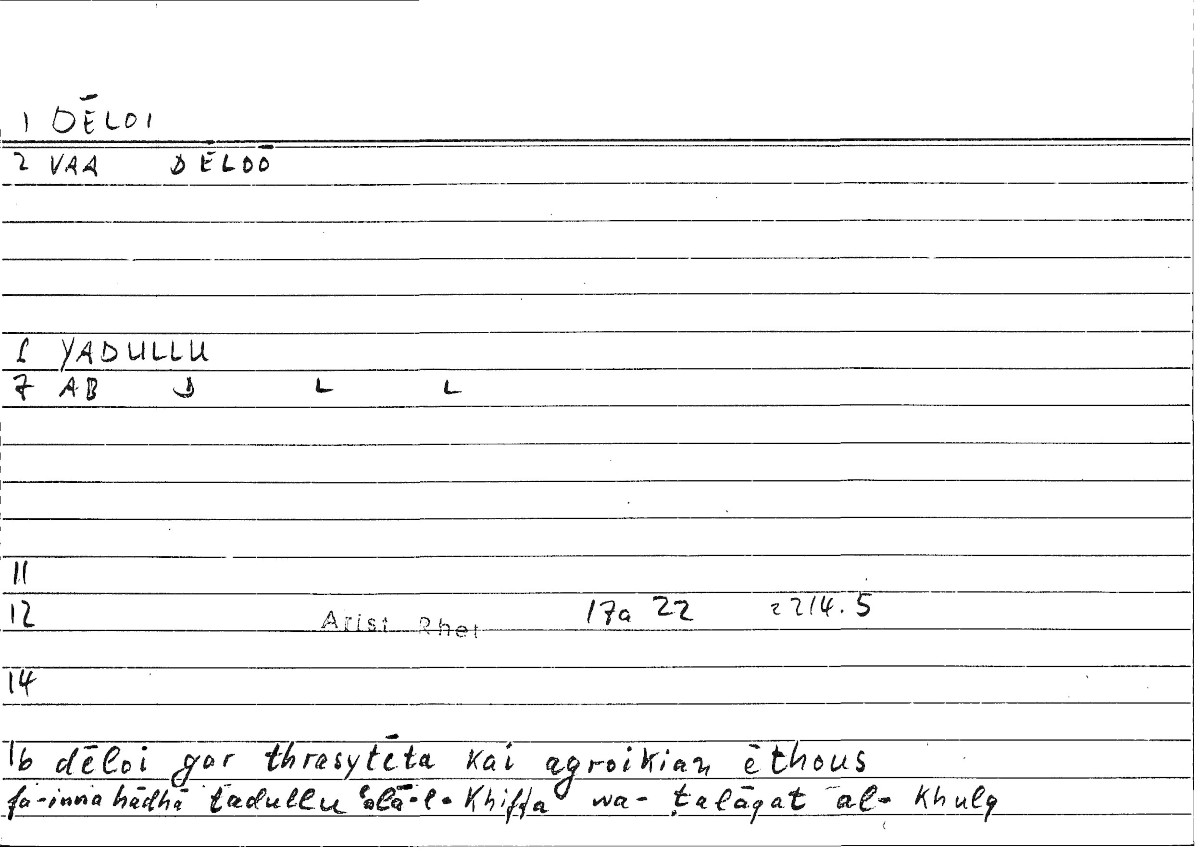 1 DĒLOI
2 VAA DĒLOŌ
6 YADULLU
7 AB D L L
11
12 Arist Rhet 17a 22 2214.5
14
16 dēloi gar thrasytēta kai agroikian ēthous
fa-inna hādhā tadullu ʿalā-l-Khiffa wa-ṭalāqat al-Khulq